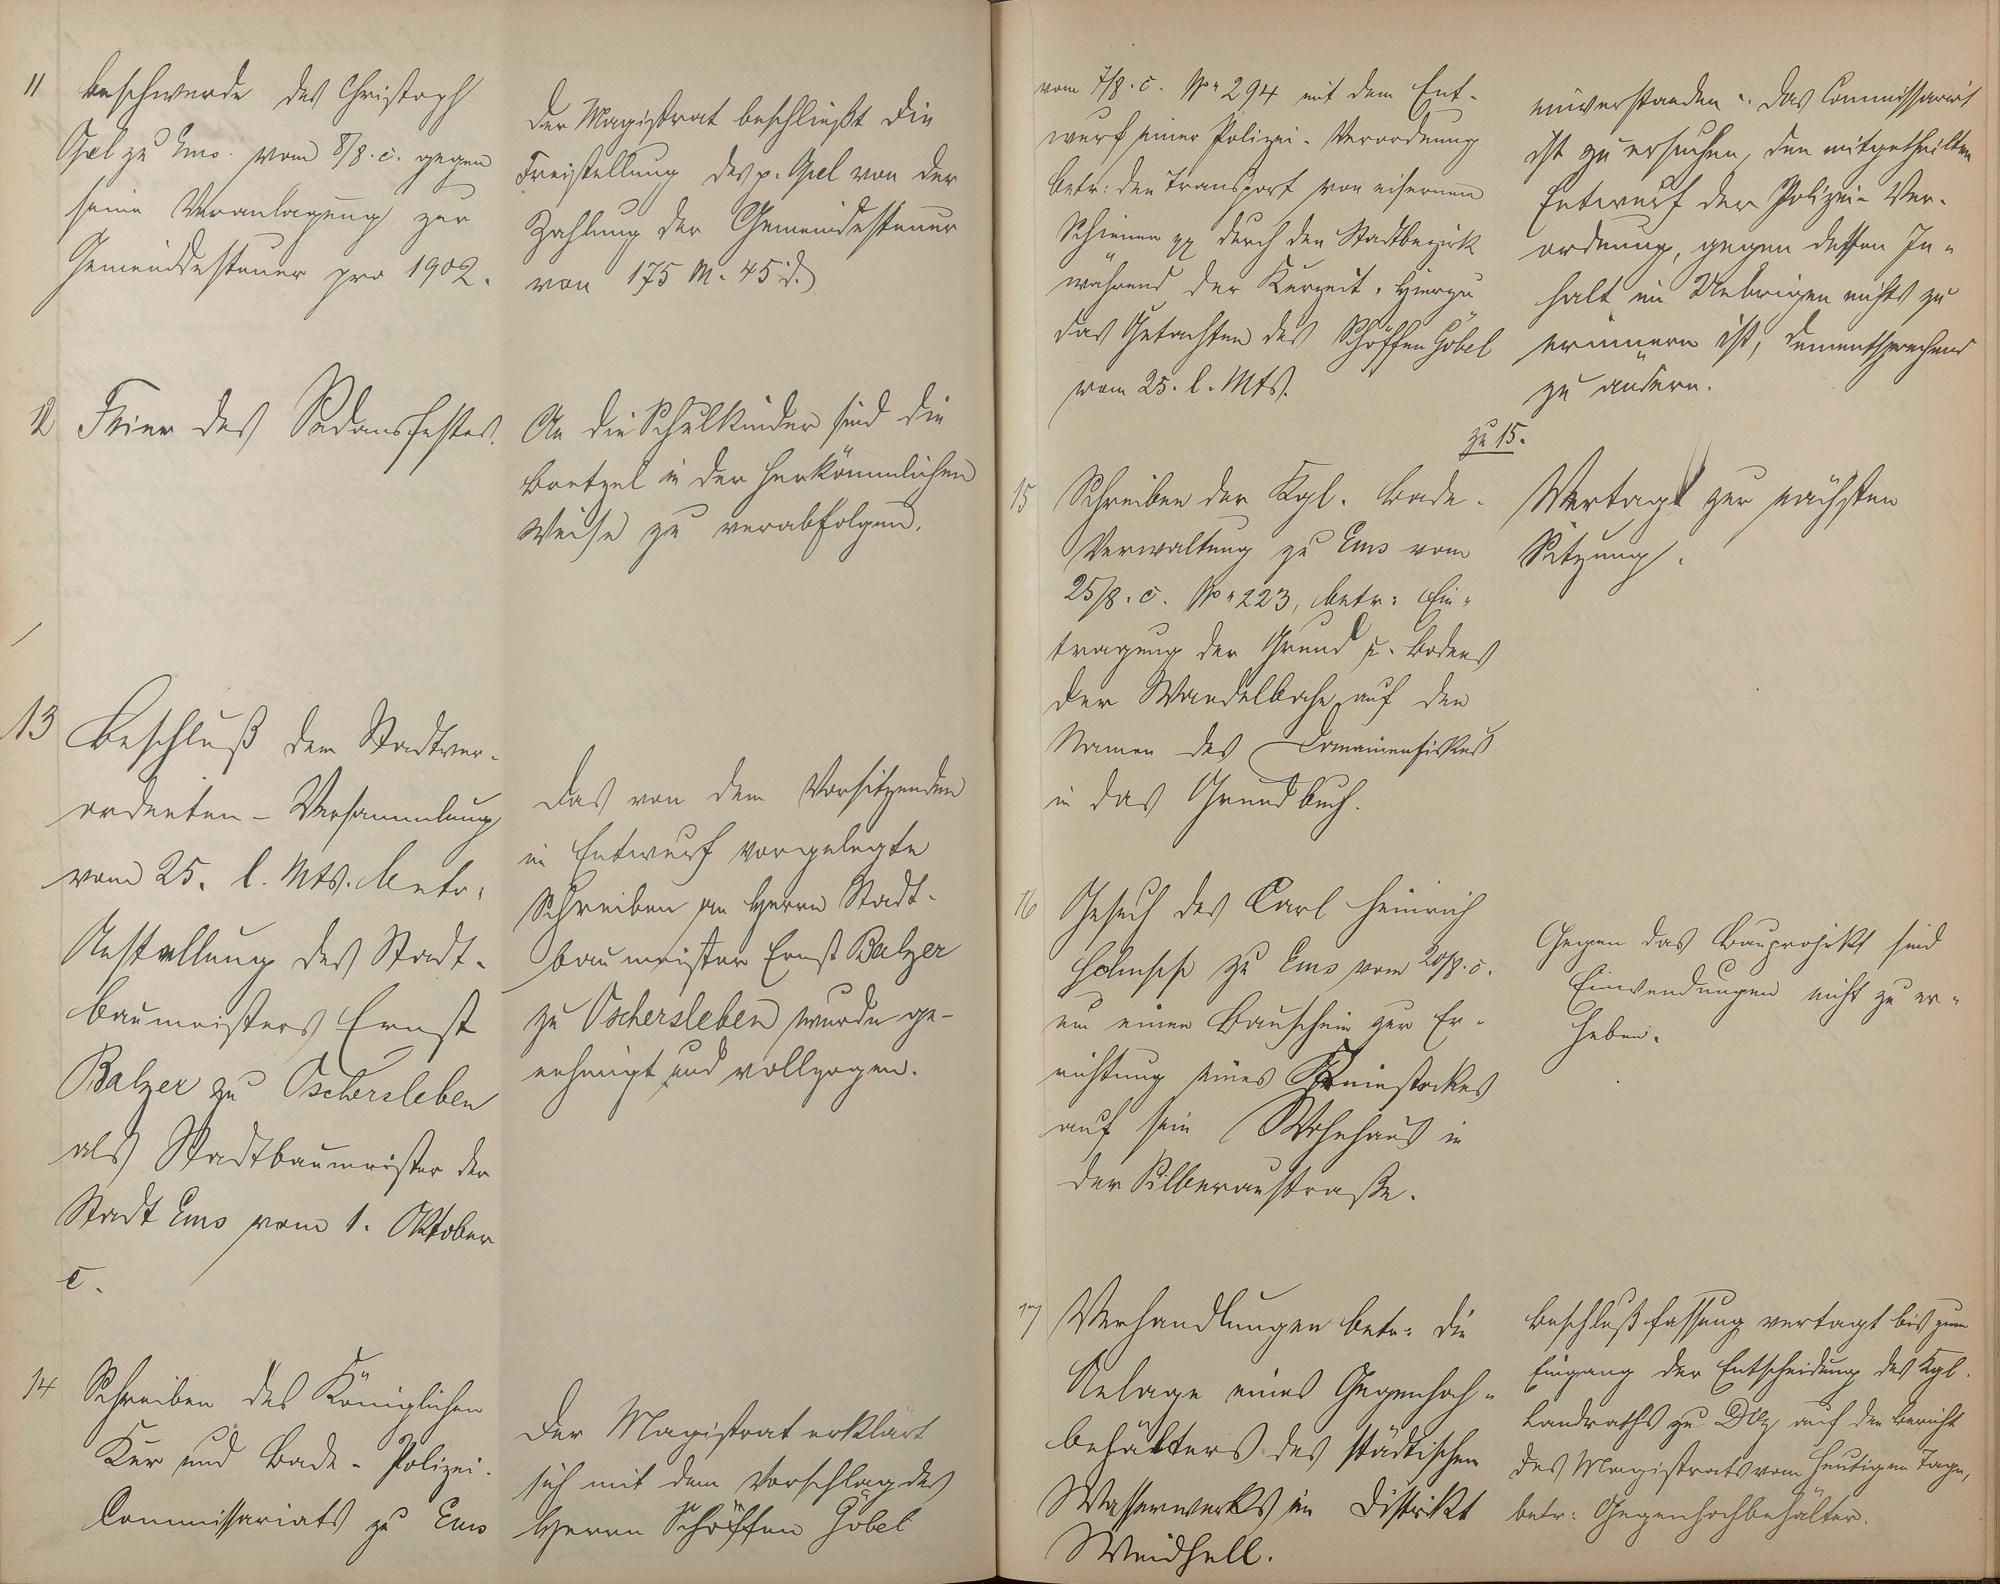 11 Beschwerde des Christoph
Gel zu Ems. vom 8/8. c. gegen
seine Veranlagung zur
Gemeindesteuer pro 1902.
Der Magistrat beschließt die
Freistellung des p. Gel von der
Zahlung der Gemeindesteuer
von 175 M. 45 d.
12 Feier des Sedansfestes.
An die Schulkinder sind die
Bretzel in der herkömmlichen
Weise zu verabfolgen.
13 Beschluß der Stadtver-
ordneten-Versammlung
vom 25. l. Mts. betr.
Anstellung des Stadt-
baumeisters Ernst
Balzer zu Oschersleben
als Stadtbaumeister der
Stadt Ems vom 1. Oktober
c.
Das von dem Vorsitzenden
im Entwurf vorgelegte
Schreiben an Herrn Stadt-
baumeister Ernst Balzer
zu Oschersleben wurde ge-
nehmigt und vollzogen.
14 Schreiben des Königlichen
Kur und Bade-Polizei-
Commissariats zu Ems
Der Magistrat erklärt
sich mit dem Vorschlag des
Herrn Schöffen Göbel
vom 7/8. c. No. 294 mit dem Ent-
wurf einer Polizei-Verordnung
betr: den Transport von eisernen
Schienen pp durch den Stadtbezirk
während der Kurzeit. Hierzu
das Gutachten des Schöffen Göbel
vom 25. l. Mts.
einverstanden. Das Commissariat
ist zu ersuchen, den mitgetheilten
Entwurf der Polizei-Ver-
ordnung, gegen dessen In-
halt im Uebrigen nichts zu
erinnern ist, dementsprechend
zu ändern.
zu 15.
15 Schreiben der Kgl. Bade-
Verwaltung zu Ems vom
25/8. c. No. 223, betr: Ein-
tragung der Grund u. Bodens
der Wandelbahn auf den
Namen des Domainenfiskus
in das Grundbuch.
Vertagt zur nächsten
Sitzung.
16 Gesuch des Carl Heinrich
zu Ems vom 20/8. c.
um einen Bauschein zur Er-
richtung eines Kniestockes
auf sein Wohnhaus in
der Silberaustraße.
Gegen das Bauprojekt sind
Einwendungen nicht zu er-
heben.
17 Verhandlungen betr: die
Anlage eines Gegenhoch-
behälters des städtischen
Wasserwerks im Distrikt
Weidhell.
Beschlußfassung vertagt bis zum
Eingang der Entscheidung des Kgl.
Landraths zu Diez auf den Bericht
des Magistrats vom heutigen Tage,
betr: Gegenhochbehälter.